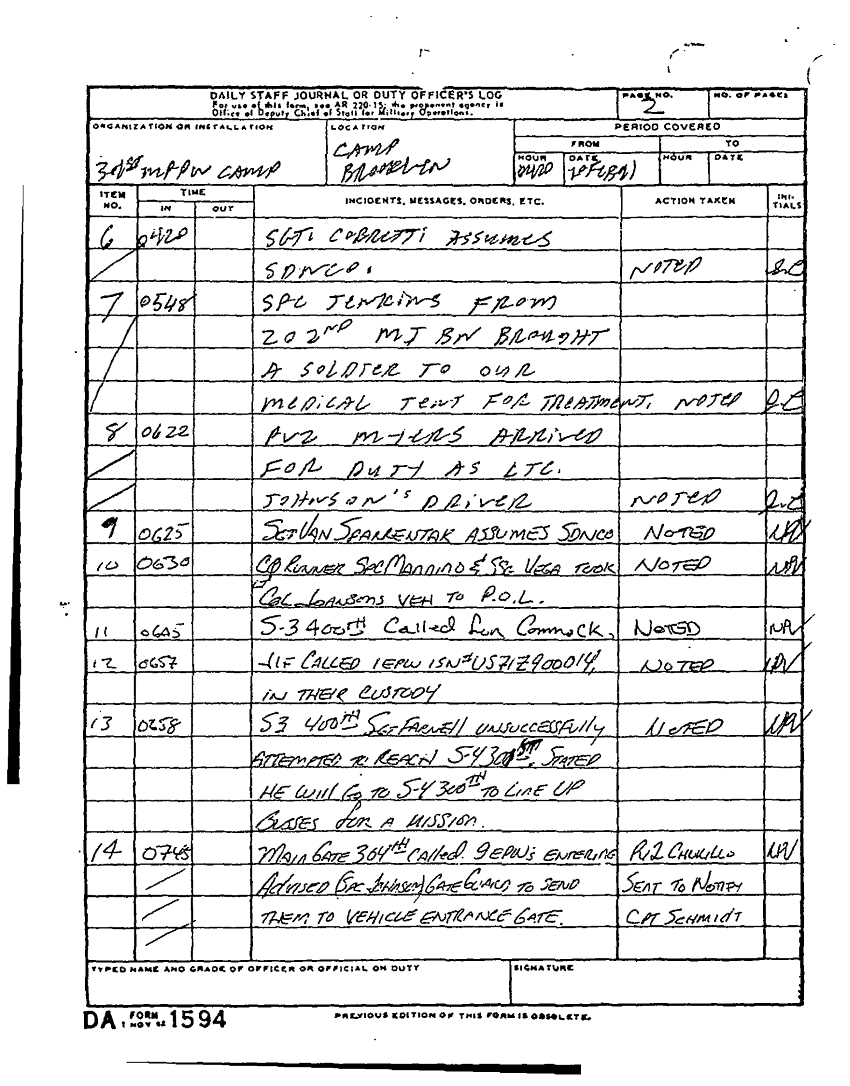 DAILY STAFF JOURNAL OR DUTY OFFICER'S LOG
For use of this form, see AR 220-15; the proponent agency is
Office of Deputy Chief of Staff for Military Operations.
PAGE NO.
2
NO. OF PAGES
ORGANIZATION OR INSTALLATION
301st MPPW CAMP
LOCATION
CAMP
BROOKLYN
PERIOD COVERED
FROM
TO
HOUR
DATE
HOUR
DATE
0420
28FEB91
ITEM NO.
TIME
IN
OUT
INCIDENTS, MESSAGES, ORDERS, ETC.
ACTION TAKEN
INITIALS
6 0420 SGT. COBRETTI ASSUMES
SDNCO. NOTED
7 0548 SPC JENKINS FROM
202ND MI BN BROUGHT
A SOLDIER TO OUR
MEDICAL TENT FOR TREATMENT. NOTED
8 0622 PV2 MYERS ARRIVED
FOR DUTY AS LTC.
JOHNSON'S DRIVER NOTED
9 0625 SGT VAN SPANKENTAK ASSUMES SDNCO NOTED
10 0630 CQ RUNNER SPC MANNINO & SSG VEGA TOOK NOTED
LT COL JOHNSONS VEH TO P.O.L.
11 0645 S-3 400TH Called NOTED
12 0657 JIF CALLED 1 EPW ISN# US717Z900014, NOTED
IN THEIR CUSTODY
13 0658 S3 400TH SGT FARNELL UNSUCCESSFULLY NOTED
ATTEMPTED TO REACH S-4 300TH. STATED
HE WILL GO TO S-4 300TH TO LINE UP
BUSSES FOR A MISSION.
14 0745 MAIN GATE 304TH CALLED. 9 EPW's ENTERING
ADVISED (SPC JOHNSON) GATE GUARD TO SEND SENT TO NOTIFY
THEM TO VEHICLE ENTRANCE GATE. CPT SCHMIDT
TYPED NAME AND GRADE OF OFFICER OR OFFICIAL ON DUTY
SIGNATURE
DA FORM 1594
1 NOV 62
PREVIOUS EDITION OF THIS FORM IS OBSOLETE.